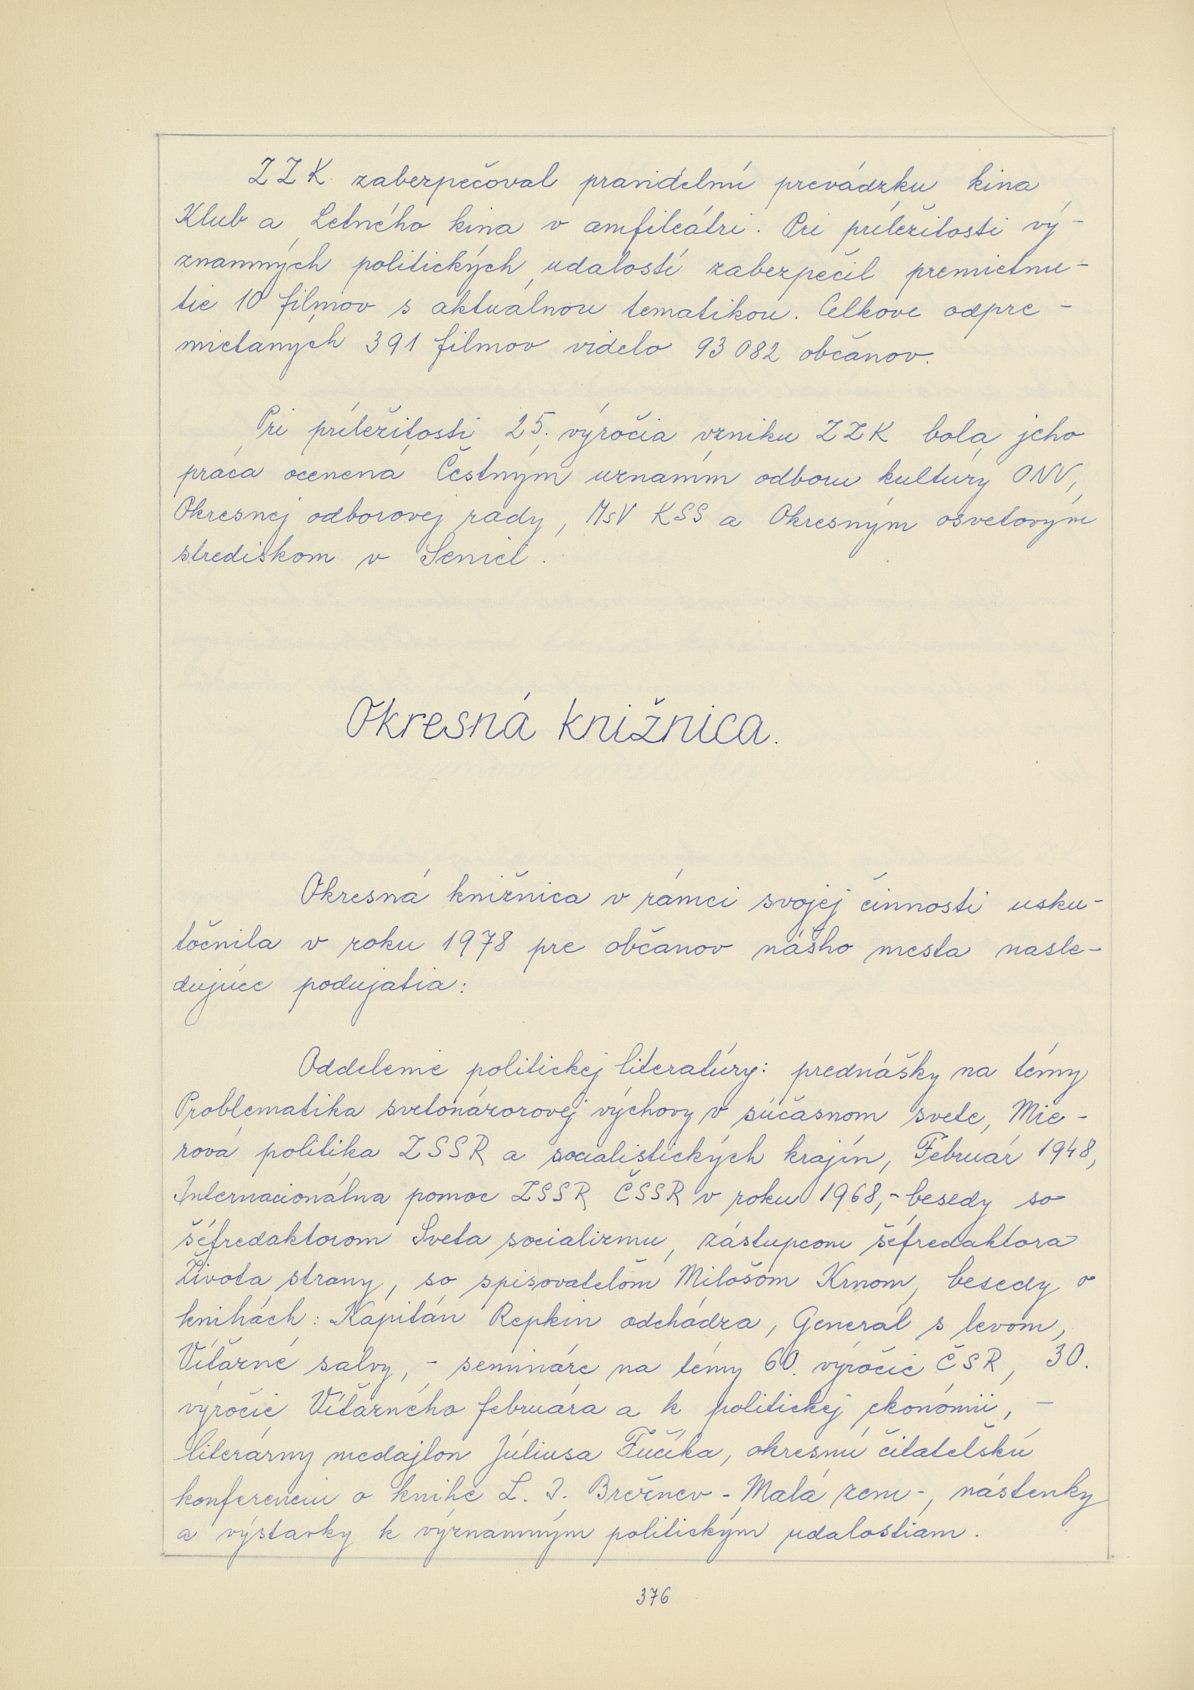 ZZK zabezpečoval pravidelnú prevádzku kina
Klub a Letného kina v amfiteátri. Pri príležitosti vý-
znamných politických udalostí zabezpečil premietnu-
tie 10 filmov s aktuálnou tematikou. Celkove odpre-
mietaných 391 filmov videlo 93 082 občanov.
Pri príležitosti 25. výročia vzniku ZZK bola jeho
práca ocenená Čestným uznaním odboru kultúry ONV,
Okresnej odborovej rady, MsV KSS a Okresným osvetovým
strediskom v Senici.
Okresná knižnica.
Okresná knižnica v rámci svojej činnosti usku-
točnila v roku 1978 pre občanov nášho mesta nasle-
dujúce podujatia:
Oddelenie politickej literatúry: prednášky na témy
Problematika svetonázorovej výchovy v súčasnom svete, Mie-
rová politika ZSSR a socialistických krajín, Február 1948,
Internacionálna pomoc ZSSR ČSSR v roku 1968,- besedy so
šéfredaktorom Sveta socializmu, zástupcom šéfredaktora
Života strany, so spisovateľom Milošom Krnom, besedy o
knihách: Kapitán Repkin odchádza, Generál s levom,
Víťazné salvy, - semináre na témy 60. výročie ČSR, 30.
výročie Víťazného februára a k politickej ekonómii, -
literárny medajlon Júliusa Fučíka, okresnú čitateľskú
konferenciu o knihe L. I. Brežnev - Malá zem -, nástenky
a výstavky k významným politickým udalostiam.
376